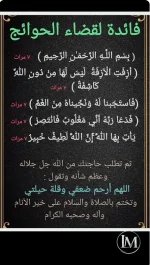 فائدة لقضاء الحوائج
( بِسْمِ اللَّهِ الرَّحْمَٰنِ الرَّحِيمِ ) ٧ مرات
( أَزِفَتِ الْآزِفَةُ لَيْسَ لَهَا مِنْ دُونِ اللَّهِ
كَاشِفَةٌ ) ٧ مرات
(فَاسْتَجَبْنَا لَهُ وَنَجَّيْنَاهُ مِنَ الْغَمِّ ) ٧ مرات
( فَدَعَا رَبَّهُ أَنِّي مَغْلُوبٌ فَانْتَصِرْ ) ٧ مرات
يَأْتِ بِهَا اللَّهُ إِنَّ اللَّهَ لَطِيفٌ خَبِيرٌ ٧ مرات
ثم تطلب حاجتك من الله جل جلاله
وعظم شأنه وتقول :
اللهم أرحم ضعفي وقلة حيلتي
وتختم بالصلاة والسلام على خير الأنام
وآله وصحبه الكرام
M